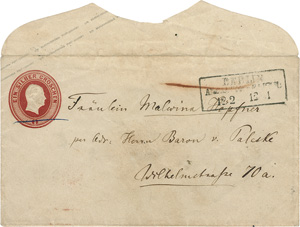 EIN SILBER GROSCHEN
BERLIN
13 2 12 1
Fräulein Malwina Höpfner
per adr. Herrn Baron v. Paleske
Wilhelmstraße 70a.